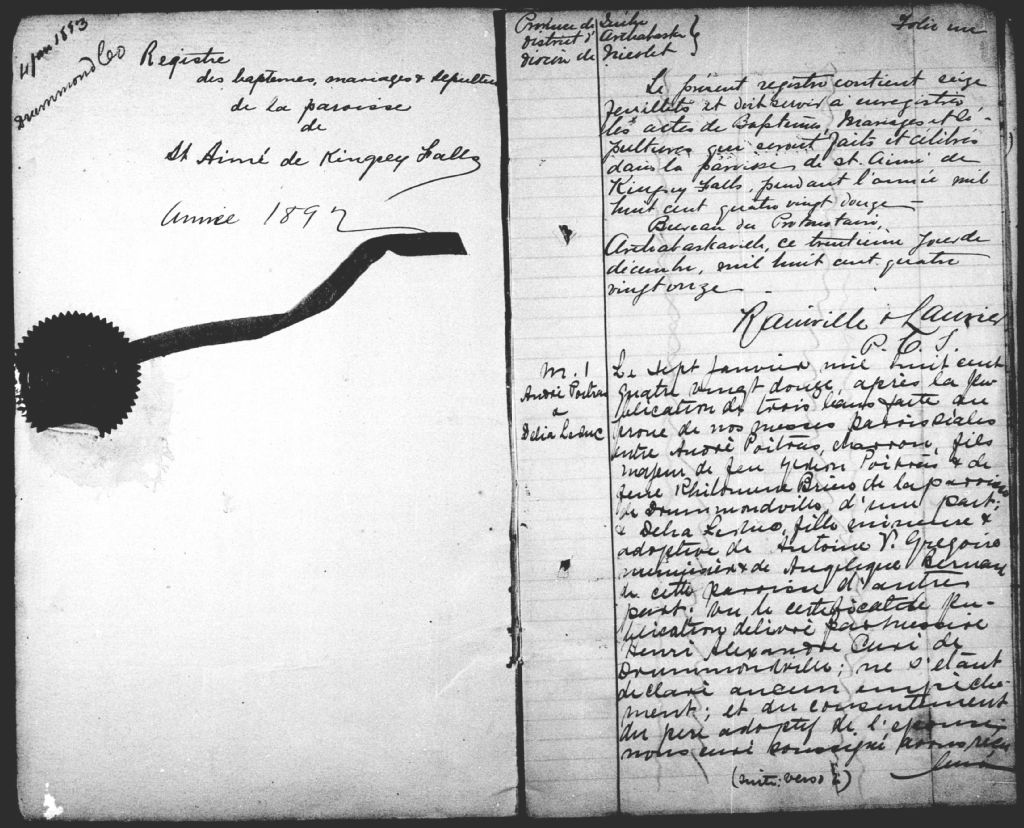 4 jan 1893
Drummond Co
Registre
des baptemes, mariages & sepultures
de la paroisse
de
St Aimé de Kingsey Falls
Année 1892
Province de Québec
District d'Arthabaska
Diocèse de Nicolet
Folio un
Le présent registre contient seize
feuillets et doit servir à enregistrer
les actes de Baptêmes, Mariages et Sé-
pultures qui seront faits et célébrés
dans la paroisse de St. Aimé de
Kingsey Falls, pendant l'année mil
huit cent quatre vingt douze –
Bureau du Protonotaire,
Arthabaskaville, ce trentième jour de
décembre, mil huit cent quatre
vingt onze –
Rainville & Laurier
P. C. S.
M. 1
André Poitras
&
Delia Leduc
Le sept Janvier mil huit cent
quatre vingt douze, après la pu-
blication de trois bans faite au
prone de nos messes paroissiales
entre André Poitras, charron, fils
majeur de feu Gédéon Poitras & de
feue Philomene Brien de la paroisse
de Drummondville, d'une part;
& Delia Leduc, fille mineure &
adoptive de Antoine V. Gregoire
menuisier & de Angelique Bernard
de cette paroisse d'autre
part; vu le certificat de pu-
blication délivré par messire
Henri Alexandre Curé de
Drummondville; ne s'étant
declaré aucun empêche-
ment; et du consentement
du pere adoptif de l'épouse
nous curé soussigné avons reçu
leur
(suite: verso)